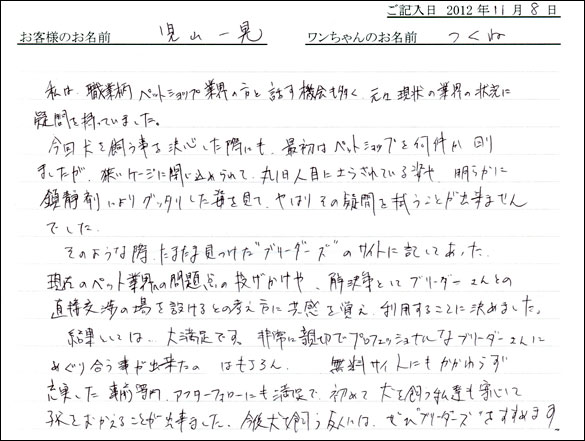 ご記入日 2012年11月8日
お客様のお名前 児山 一晃 ワンちゃんのお名前 つくね
私は、職業柄ペットショップ業界の方と話す機会も多く、元々現状の業界の状況に
疑問を持っていました。
今回犬を飼う事を決心した際にも、最初はペットショップを何件か回り
ましたが、狭いケージに閉じ込められて、丸1日人目にさらされている姿や、明らかに
鎮静剤によりグッタリした姿を見て、やはりその疑問を拭うことが出来ません
でした。
そのような際、たまたま見つけた"ブリーダーズ"のサイトに記してあった、
現在のペット業界への問題点の投げかけや、解決策としてブリーダーさんとの
直接交渉の場を設けるとの考え方に共感を覚え、利用することに決めました。
結果としては、大満足です。非常に親切でプロフェッショナルなブリーダーさんに
めぐり合う事が出来たの はもちろん、 無料サイトにもかかわらず
充実した事前案内、アフターフォローにも満足で、初めて犬を飼う私達も安心して
子犬をむかえることが出来ました。今後犬を飼う友人には、ぜひ"ブリーダーズ"をすすめます。